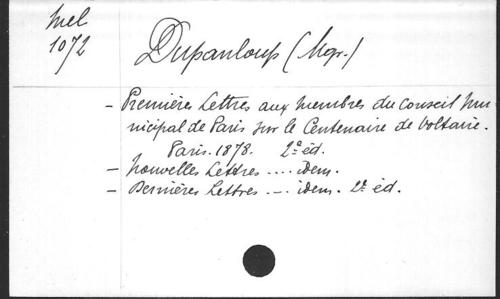 Mel
1072
Dupanloup (Mgr.)
- Premières Lettres aux membres du Conseil mu
nicipal de Paris sur le Centenaire de Voltaire.
Paris. 1878. 2e éd.
- Nouvelles Lettres .... idem.
- Dernières Lettres .... idem. 2e éd.